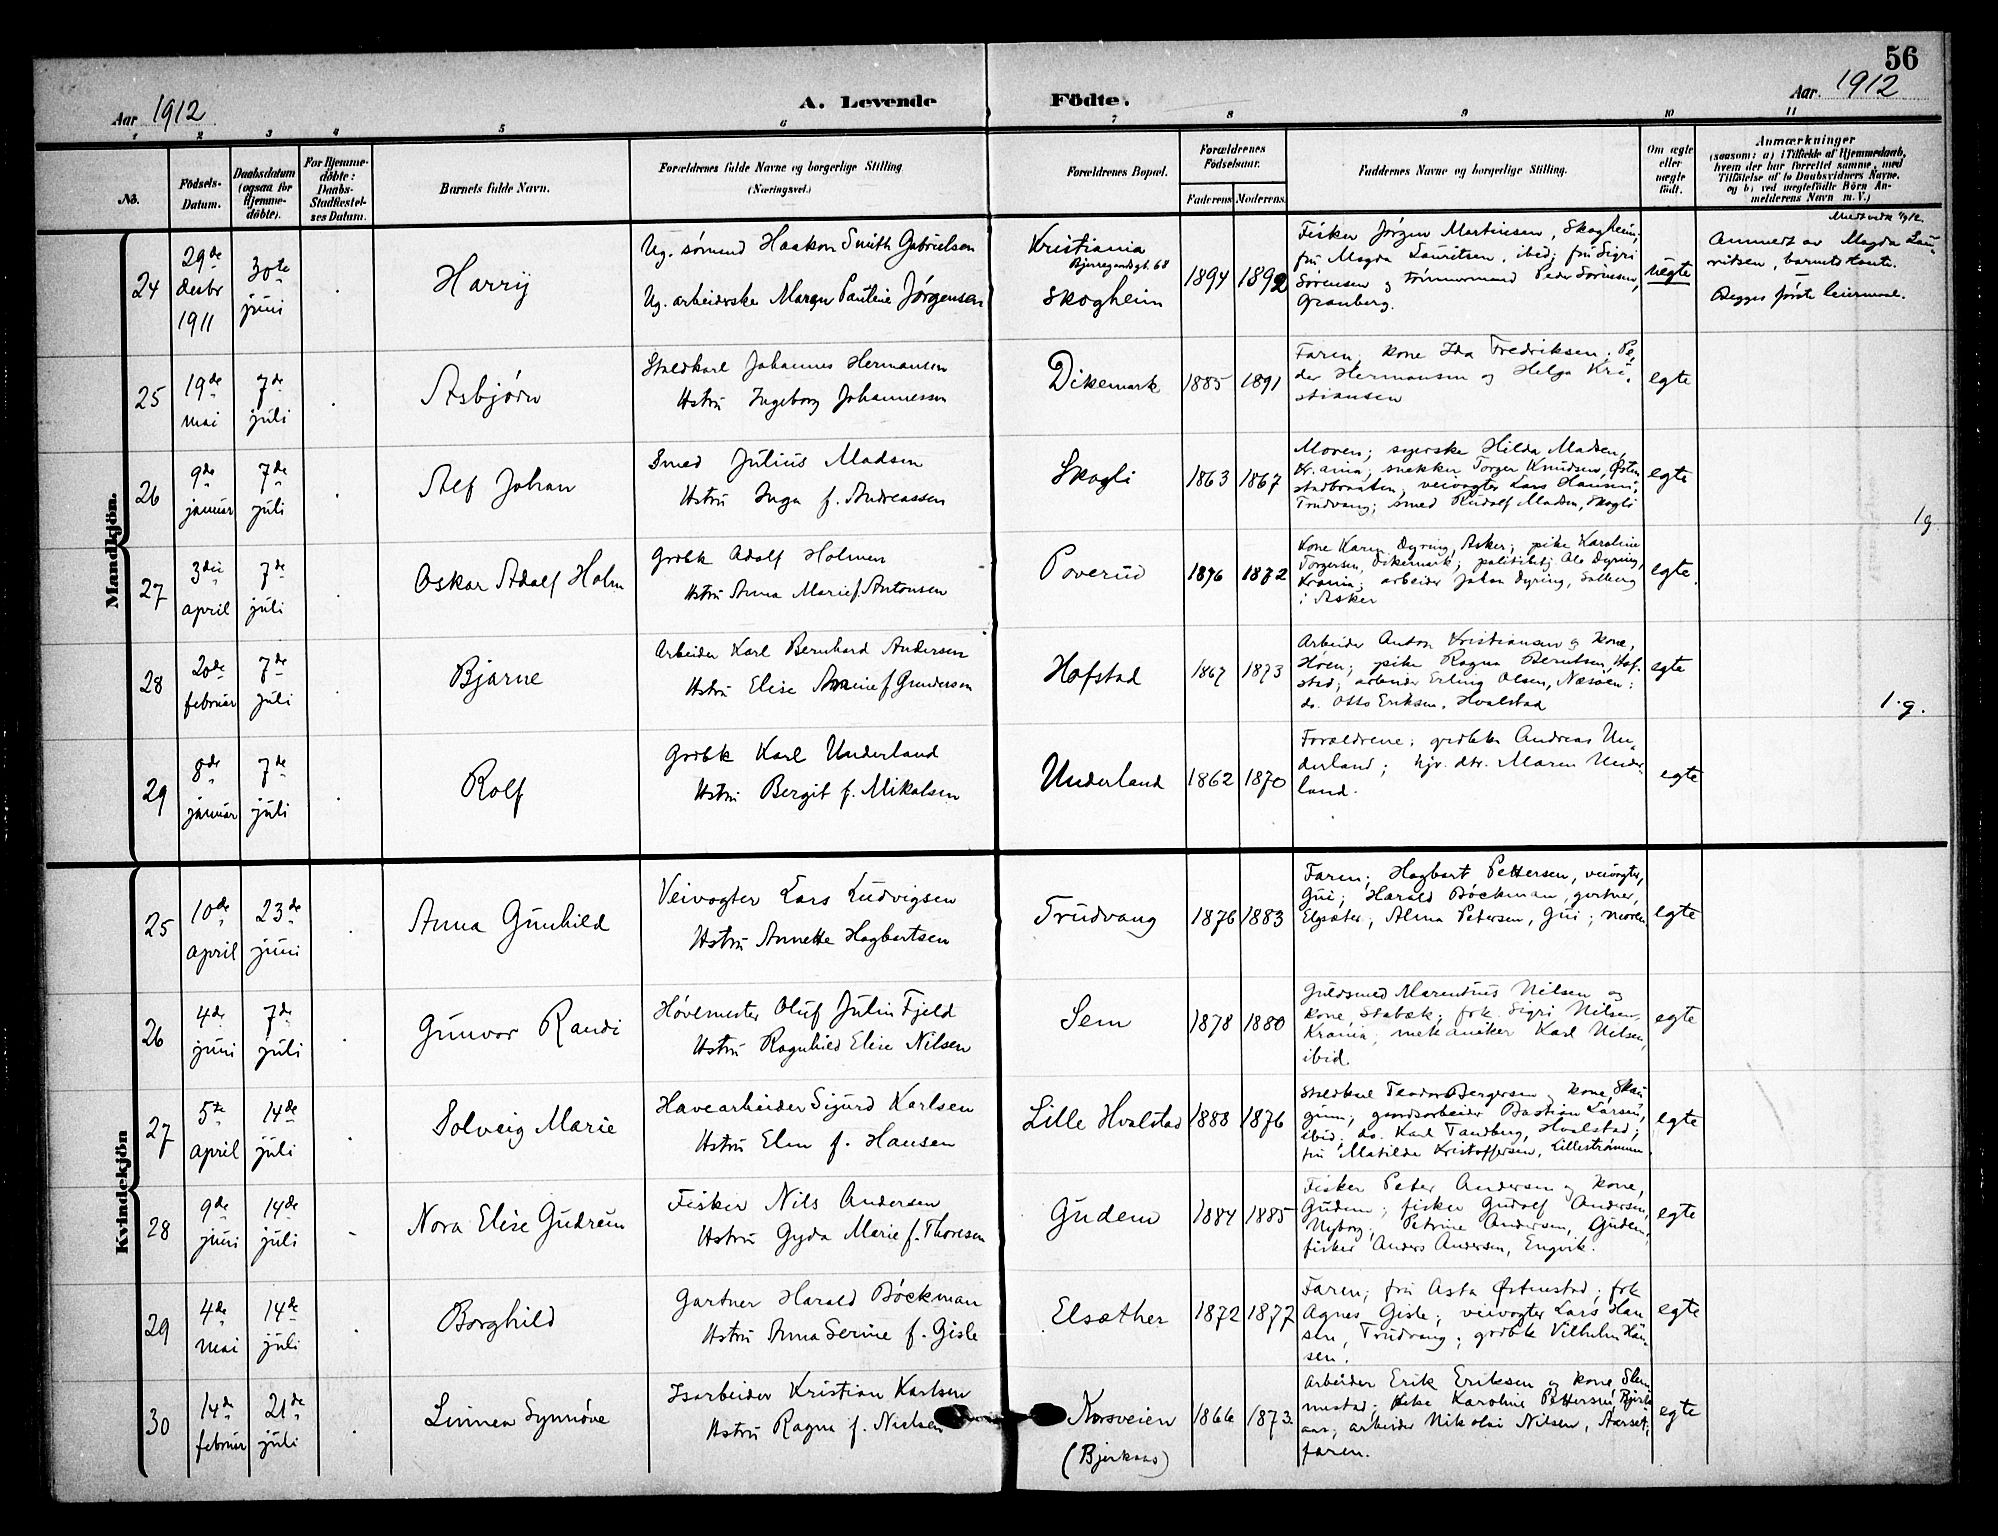 56
Aar 1912
A. Levende Födte.
Aar. 1912
1 2 3 4 5 6 7 8 9 10 11
No.
Födsels-Datum.
Daabsdatum (ogsaa for Hjemme-döbte).
For Hjemme-döbte: Daabs-Stadfæstel-ses Datum.
Barnets fulde Navn.
Forældrenes fulde Navne og borgerlige Stilling (Næringsvei.)
Forældrenes Bopæl.
Forældrenes Födselsaar.
Faderens Moderens
Faddernes Navne og borgerlige Stilling.
Om ægte eller uægte födt.
Anmærkninger
(saasom: a) i Tilfælde af Hjemmedaab,
hvem der har forrettet samme, med
Tilföielse af to Daabsvidners Navne,
og b) ved uægtefödte Börn An-
melderens Navn m. V.)
Mandkjön.
24
29de desbr 1911
30te juni
Harry
Ug. sømand Haakon Smith Gabrielsen
Ug. arbeiderske Margn Pauline Jørgensen
Kristiania
68
Skogheim
1894 1892
Fisker Jørgen Martinsen, Skogheim,
fru Magda Lauritsen, ibid; fru Sigri
Sørensen og tømmermand Peder Sørensen,
Granberg.
uegte
Anmeldt av Magda Lau-
ritsen, barnets tante.
Begges første leiermaal.
25
19de mai
7de juli
Asbjørn
Staldkarl Johannes Hermansen
Hstru Ingeborg Johannessen
Dikemark
1885 1891
Faren; kone Ida Fredriksen; Pe-
der Hermansen og Helga Kri-
stiansen
egte
26
9de januar
7de juli
Alf Johan
Smed Julius Madsen
Hstru Inga f. Andreassen
Skogli
1863 1867
Moren; syerske Hilda Madsen,
Kr.ania; snekker Torger Knudsen, Østen-
stadbraaten; veivogter Lars Hansen,
Trudvang; smed Rudolf Madsen, Skogli
egte
1 g.
27
3die april
7de juli
Oskar Adolf Holm
Grdbk Adolf Holmen
Hstru Anna Marie f. Antonsen
Poverud
1876 1872
Kone Karen Dyring, Asker; pike Karoline
Torgersen, Dikemark; politibtj. Ole Dyring,
Krania; arbeider Johan Dyring, Solberg
i Asker
egte.
28
20de februar
7de juli
Bjarne
Arbeider Karl Bernhard Andersen
Hstru Elise Amine f. Gundersen
Hofstad
1867 1873
Arbeider Anton Kristiansen og kone,
Høen; pike Ragna Berntsen, Hof-
stad; arbeider Erling Olsen, Næsøen;
do. Otto Eriksen, Hvalstad
egte
1. g.
29
8de januar
7de juli
Rolf
Grdbk Karl Underland
Hstru Bergit f. Mikalsen
Underland
1862 1870
Forældrene; grdbkr Andreas Un-
derland; hjv. dtr. Maren Under-
land.
egte
Kvindekjön
25
10de april
23de juni
Anna Gunhild
Veivogter Lars Ludvigsen
Hstru Annette Hagbartsen
Trudvang
1876 1883
Faren; Hagbart Pettersen, veivogter,
Gui; Harald Bøckman, gartner,
Elsæter; Alma Petersen, Gui; moren
egte
26
4de juni
7de juli
Gunvor Randi
Høvlmester Oluf Julin Fjeld
Hstru Ragnhild Elise Nilsen
Sem
1878 1880
Guldsmed Marentius Nilsen og
kone, Stabæk; frk. Sigri Nilsen,
Krania; mekaniker Karl Nilsen,
ibid.
egte
27
5te april
14de juli
Solveig Marie
Havearbeider Sigurd Karlsen
Hstru Elen f. Hansen
Lille Hvalstad
1888 1876
Staldkarl Teodor Bergersen og kone, Skau-
gum; gaardsarbeider Bastian Larsen,
ibid; do. Karl Tandberg, Hvalstad;
fru Matilde Kristoffersen, Lillestrømmen.
egte
28
9de juni
14de juli
Nora Elise Gudrun
Fisker Nils Andersen
Hstru Gyda Marie f. Thoresen
Gudem
1884 1885
Fisker Peter Andersen og kone,
Gudem; fisker Gudolf Andersen,
Nyborg; Petrine Andersen, Gudem,
fisker Anders Andersen, Engvik.
egte
29
4de mai
14de juli
Borghild
Gartner Harald Bøckman
Hstru Anna Serine f. Gisle
Elsæther
1872 1877
Faren; fru Asta Østenstad; frk
Agnes Gisle; veivogter Lars Han-
sen, Trudvang; grdbk Vilhelm Han-
sen.
egte
30
14de februar
21de juli
Linnea Synnøve
Isarbeider Kristian Karlsen
Hstru Ragna f. Nielsen
Korsveien
(Bjerkaas)
1866 1873.
Arbeider Erik Eriksen og kone, Slem-
mestad; pike Karoline Pettersen, Bjerk-
aas; arbeider Nikolai Nilsen, Aarset;
faren.
egte